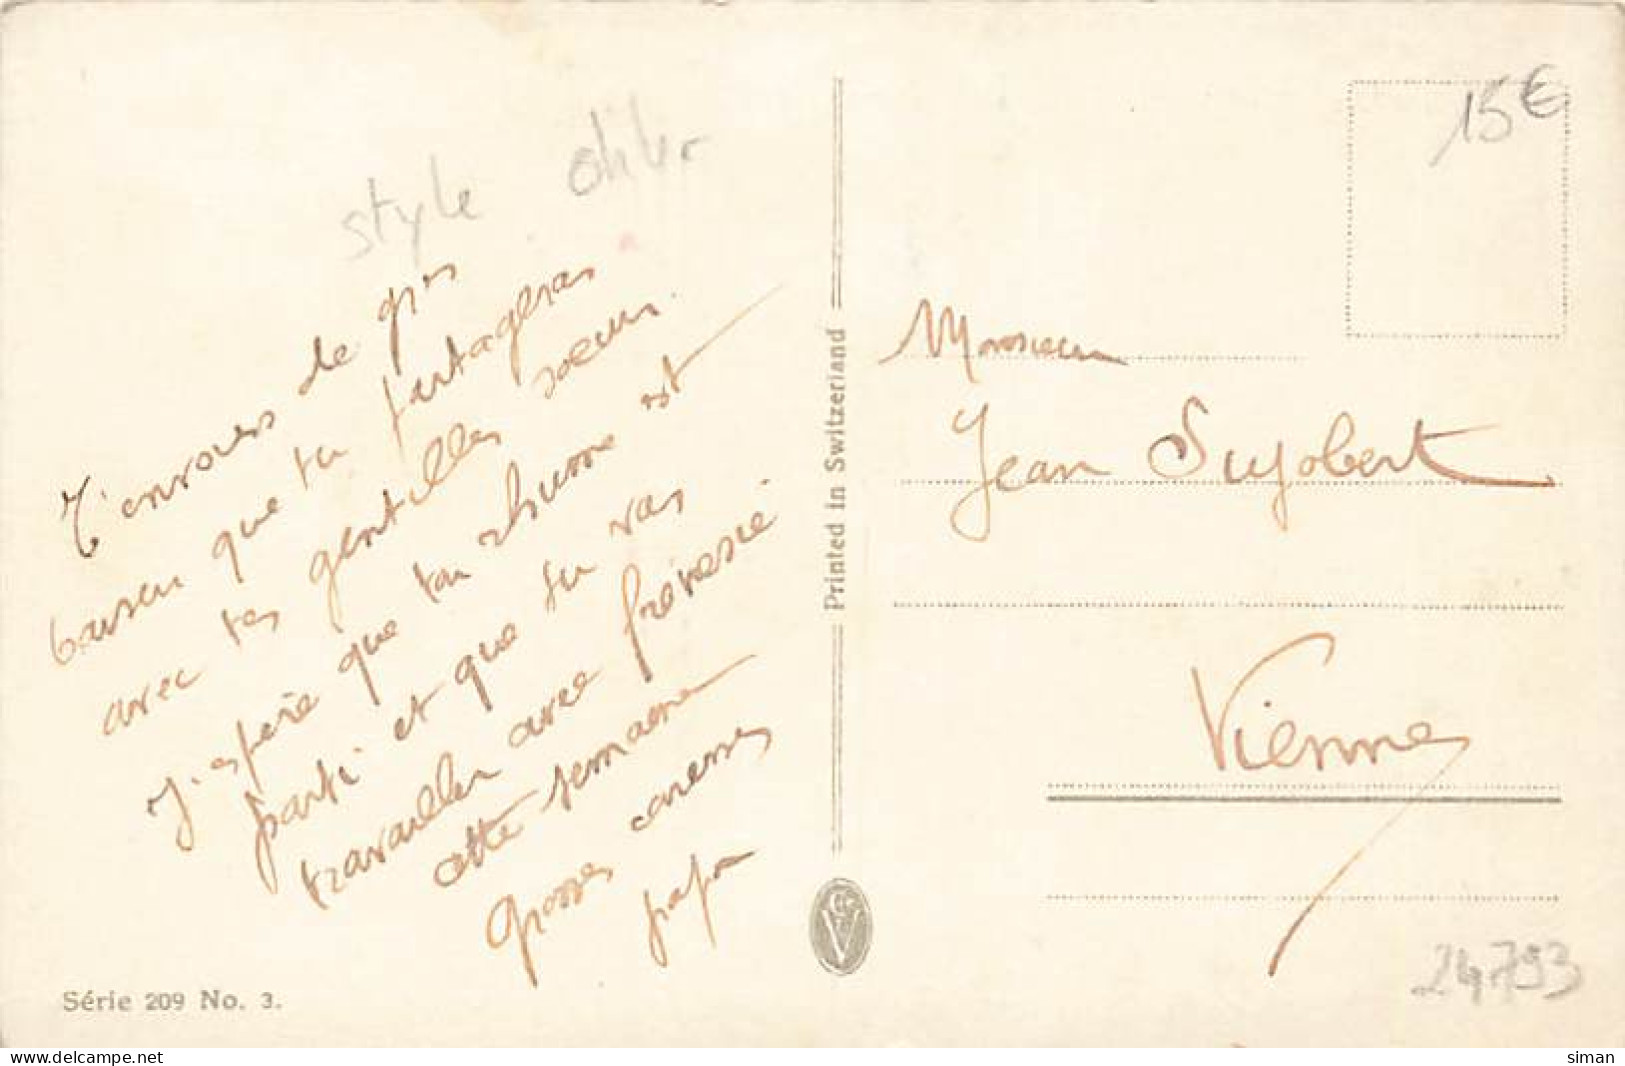 style
T'envoies de gros
baisers que tu partageras
avec tes gentilles soeurs.
J'espère que ton rhume est
parti et que tu vas
travailler avec frénésie
cette semaine
Grosses caresses
papa
Série 209 No. 3.
Printed in Switzerland
15€
Monsieur
Jean Sujobert
Vienne
24793
www.delcampe.net
siman